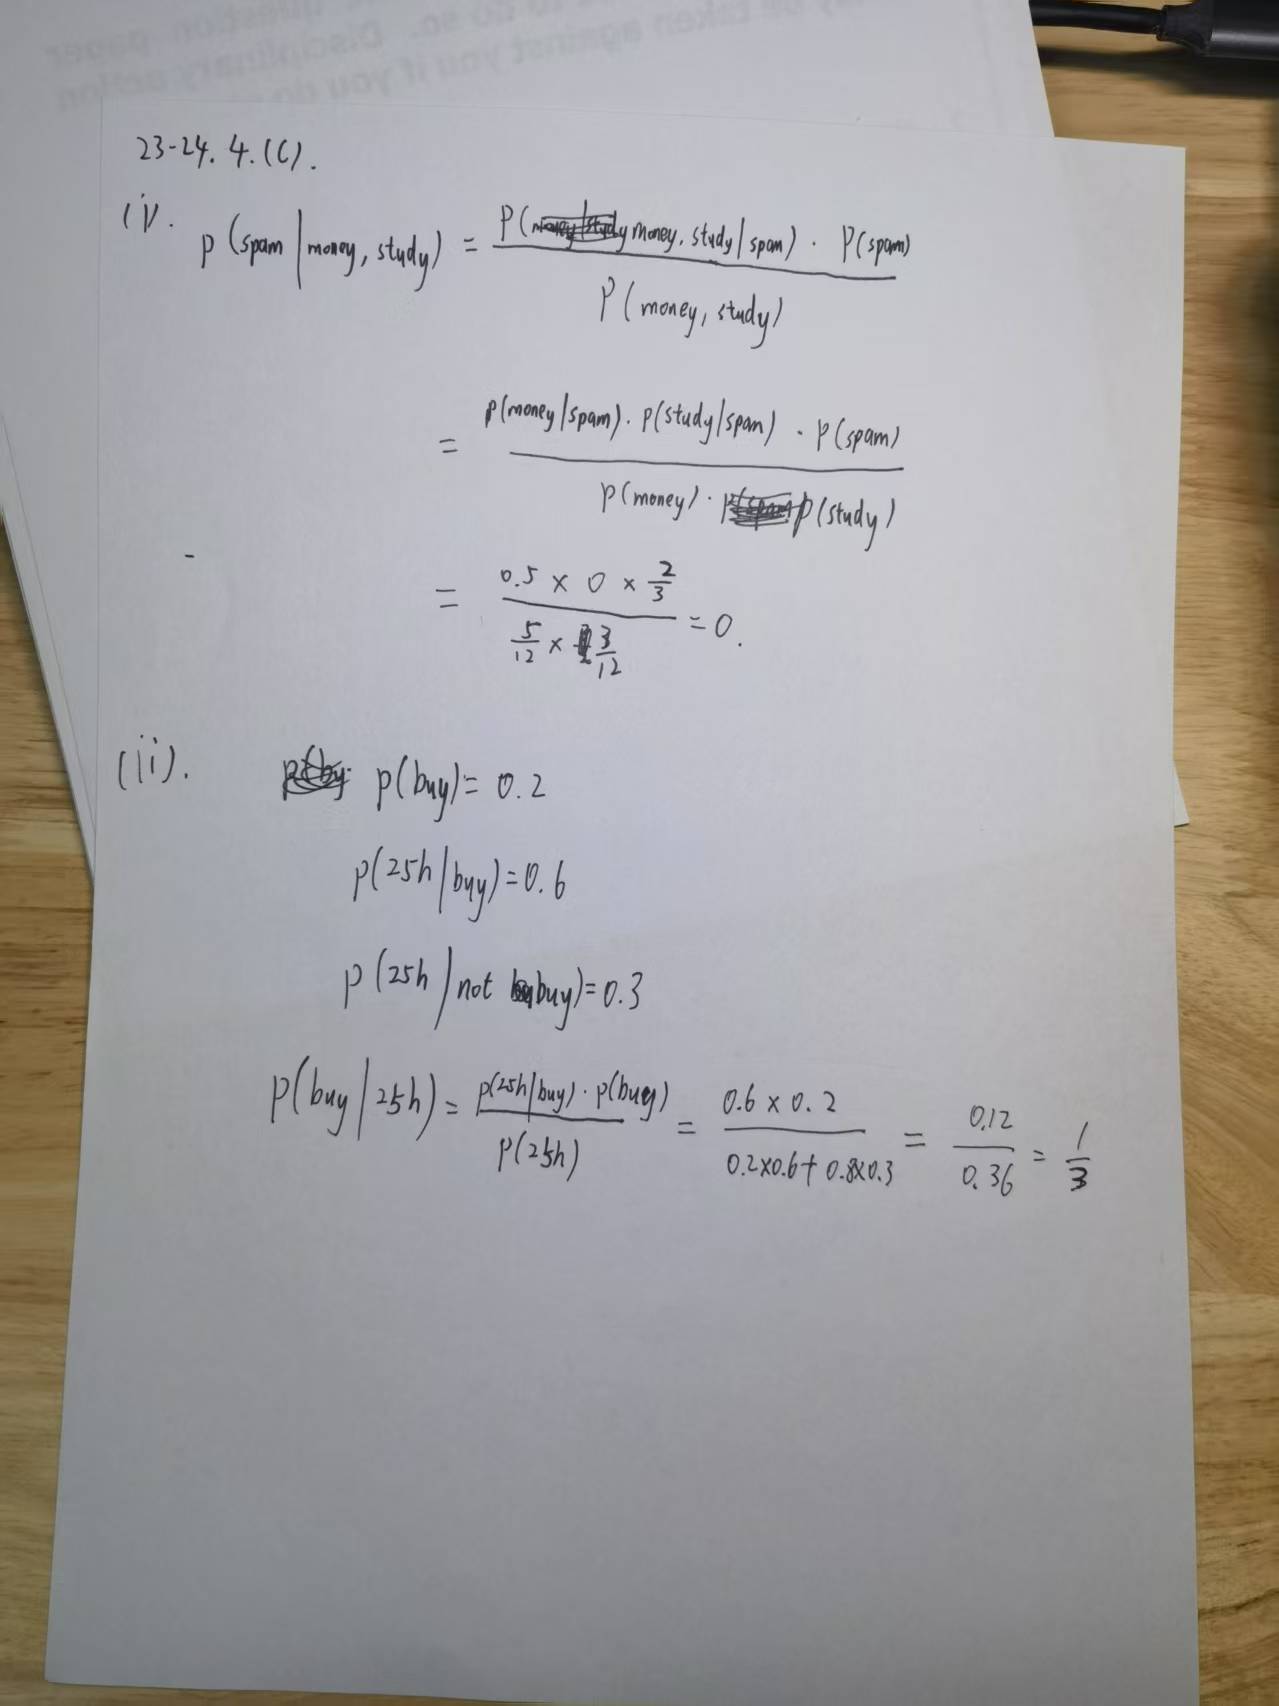 question paper
to do so. Disciplinary action
may be taken against you if you do
23-24. 4. (C).
(i). P(spam | money, study) = P(money, study | spam) · P(spam)
P(money, study)
= P(money | spam) · P(study | spam) · P(spam)
P(money) · P(study)
= 0.5 × 0 × 2/3
5/12 × 3/12 = 0.
(ii). P(buy) = 0.2
P(25h | buy) = 0.6
P(25h | not buy) = 0.3
P(buy | 25h) = P(25h | buy) · P(buy) / P(25h) = 0.6 × 0.2 / 0.2×0.6 + 0.8×0.3 = 0.12 / 0.36 = 1/3